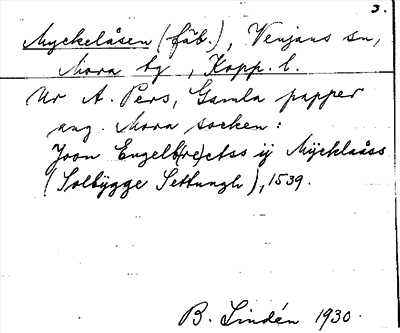 3.
Myckelåsen (fäb.), Venjans sn,
Mora tg, Kopp. l.
Ur A. Pers, Gamla papper
ang. Mora socken:
Joon Engelb(re)ctss ij Mÿcklaåss
(Solbÿgge Settungh), 1539.
B. Lindén 1930.